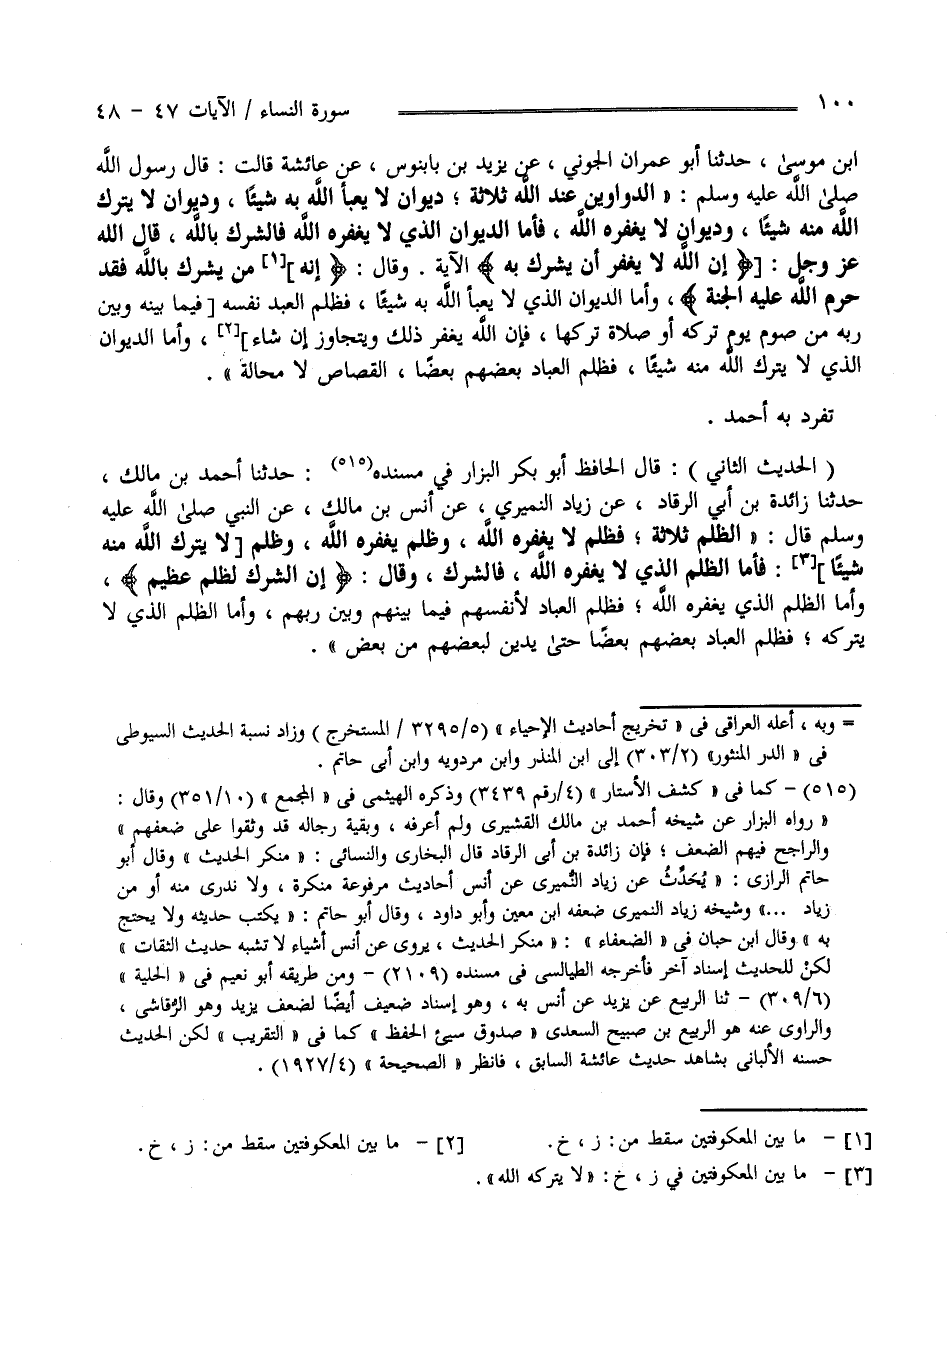 ١٠٠ سورة النساء / الآيات ٤٧ - ٤٨
ابن موسىٰ ، حدثنا أبو عمران الجوني ، عن يزيد بن بابنوس ، عن عائشة قالت : قال رسول اللَّه
صلىٰ اللَّه عليه وسلم : « الدواوين عند اللَّه ثلاثة ؛ ديوان لا يعبأ اللَّه به شيئًا ، وديوان لا يترك
اللَّه منه شيئًا ، وديوان لا يغفره اللَّه ، فأما الديوان الذي لا يغفره اللَّه فالشرك باللَّه ، قال الله
عز وجل : [﴿ إن اللَّه لا يغفر أن يشرك به ﴾ الآية . وقال : ﴿ إنه ][١] من يشرك باللَّه فقد
حرم اللَّه عليه الجنة ﴾ ، وأما الديوان الذي لا يعبأ اللَّه به شيئًا ، فظلم العبد نفسه [ فيما بينه وبين
ربه من صوم يوم تركه أو صلاة تركها ، فإن اللَّه يغفر ذلك ويتجاوز إن شاء ][٢] ، وأما الديوان
الذي لا يترك اللَّه منه شيئًا ، فظلم العباد بعضهم بعضًا ، القصاص لا محالة » .
تفرد به أحمد .
( الحديث الثاني ) : قال الحافظ أبو بكر البزار في مسنده(٥١٥) : حدثنا أحمد بن مالك ،
حدثنا زائدة بن أبي الرقاد ، عن زياد النميري ، عن أنس بن مالك ، عن النبي صلىٰ اللَّه عليه
وسلم قال : « الظلم ثلاثة ؛ فظلم لا يغفره اللَّه ، وظلم يغفره اللَّه ، وظلم [ لا يترك اللَّه منه
شيئًا ][٣] : فأما الظلم الذي لا يغفره اللَّه ، فالشرك ، وقال : ﴿ إن الشرك لظلم عظيم ﴾ ،
وأما الظلم الذي يغفره اللَّه ؛ فظلم العباد لأنفسهم فيما بينهم وبين ربهم ، وأما الظلم الذي لا
يتركه ؛ فظلم العباد بعضهم بعضًا حتىٰ يدين لبعضهم من بعض » .
= وبه ، أعله العراقى فى « تخريج أحاديث الإحياء » (٣٢٩٥/٥ / المستخرج ) وزاد نسبة الحديث السيوطى
فى « الدر المنثور» (٣٠٣/٢) إلى ابن المنذر وابن مردويه وابن أبى حاتم .
(٥١٥) - كما فى « كشف الأستار » (٤/رقم ٣٤٣٩) وذكره الهيثمى فى « المجمع » (٣٥١/١٠) وقال :
« رواه البزار عن شيخه أحمد بن مالك القشيرى ولم أعرفه ، وبقية رجاله قد وثقوا على ضعفهم »
والراجح فيهم الضعف ؛ فإن زائدة بن أبى الرقاد قال البخارى والنسائى : « منكر الحديث » وقال أبو
حاتم الرازى : « يُحَدِّثُ عن زياد النُّميرى عن أنس أحاديث مرفوعة منكرة ، ولا ندرى منه أو من
زياد ...» وشيخه زياد النميرى ضعفه ابن معين وأبو داود ، وقال أبو حاتم : « يكتب حديثه ولا يحتج
به » وقال ابن حبان فى « الضعفاء » : « منكر الحديث ، يروى عن أنس أشياء لا تشبه حديث الثقات »
لكنْ للحديث إسناد آخر فأخرجه الطيالسى فى مسنده (٢١٠٩) - ومن طريقه أبو نعيم فى « الحلية »
(٣٠٩/٦) - ثنا الربيع عن يزيد عن أنس به ، وهو إسناد ضعيف أيضًا لضعف يزيد وهو الرَّقاشى ،
والراوى عنه هو الربيع بن صبيح السعدى « صدوق سيئ الحفظ » كما فى « التقريب » لكن الحديث
حسنه الألبانى بشاهد حديث عائشة السابق ، فانظر « الصحيحة » (١٩٢٧/٤) .
[١] - ما بين المعكوفتين سقط من: ز ، خ. [٢] - ما بين المعكوفتين سقط من: ز ، خ.
[٣] - ما بين المعكوفتين في ز ، خ: «لا يتركه الله».